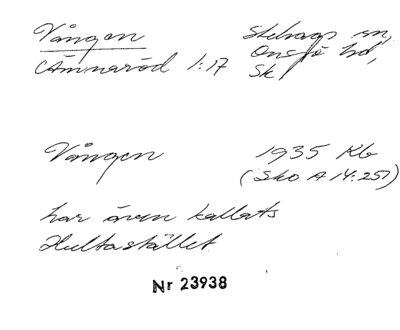 Vången Stehags sn,
Ämmaröd 1:17 Onsjö hd,
Sk
Vången 1935 Kb
(Sko A 14:257)
har även kallats
Hultastället
Nr 23938